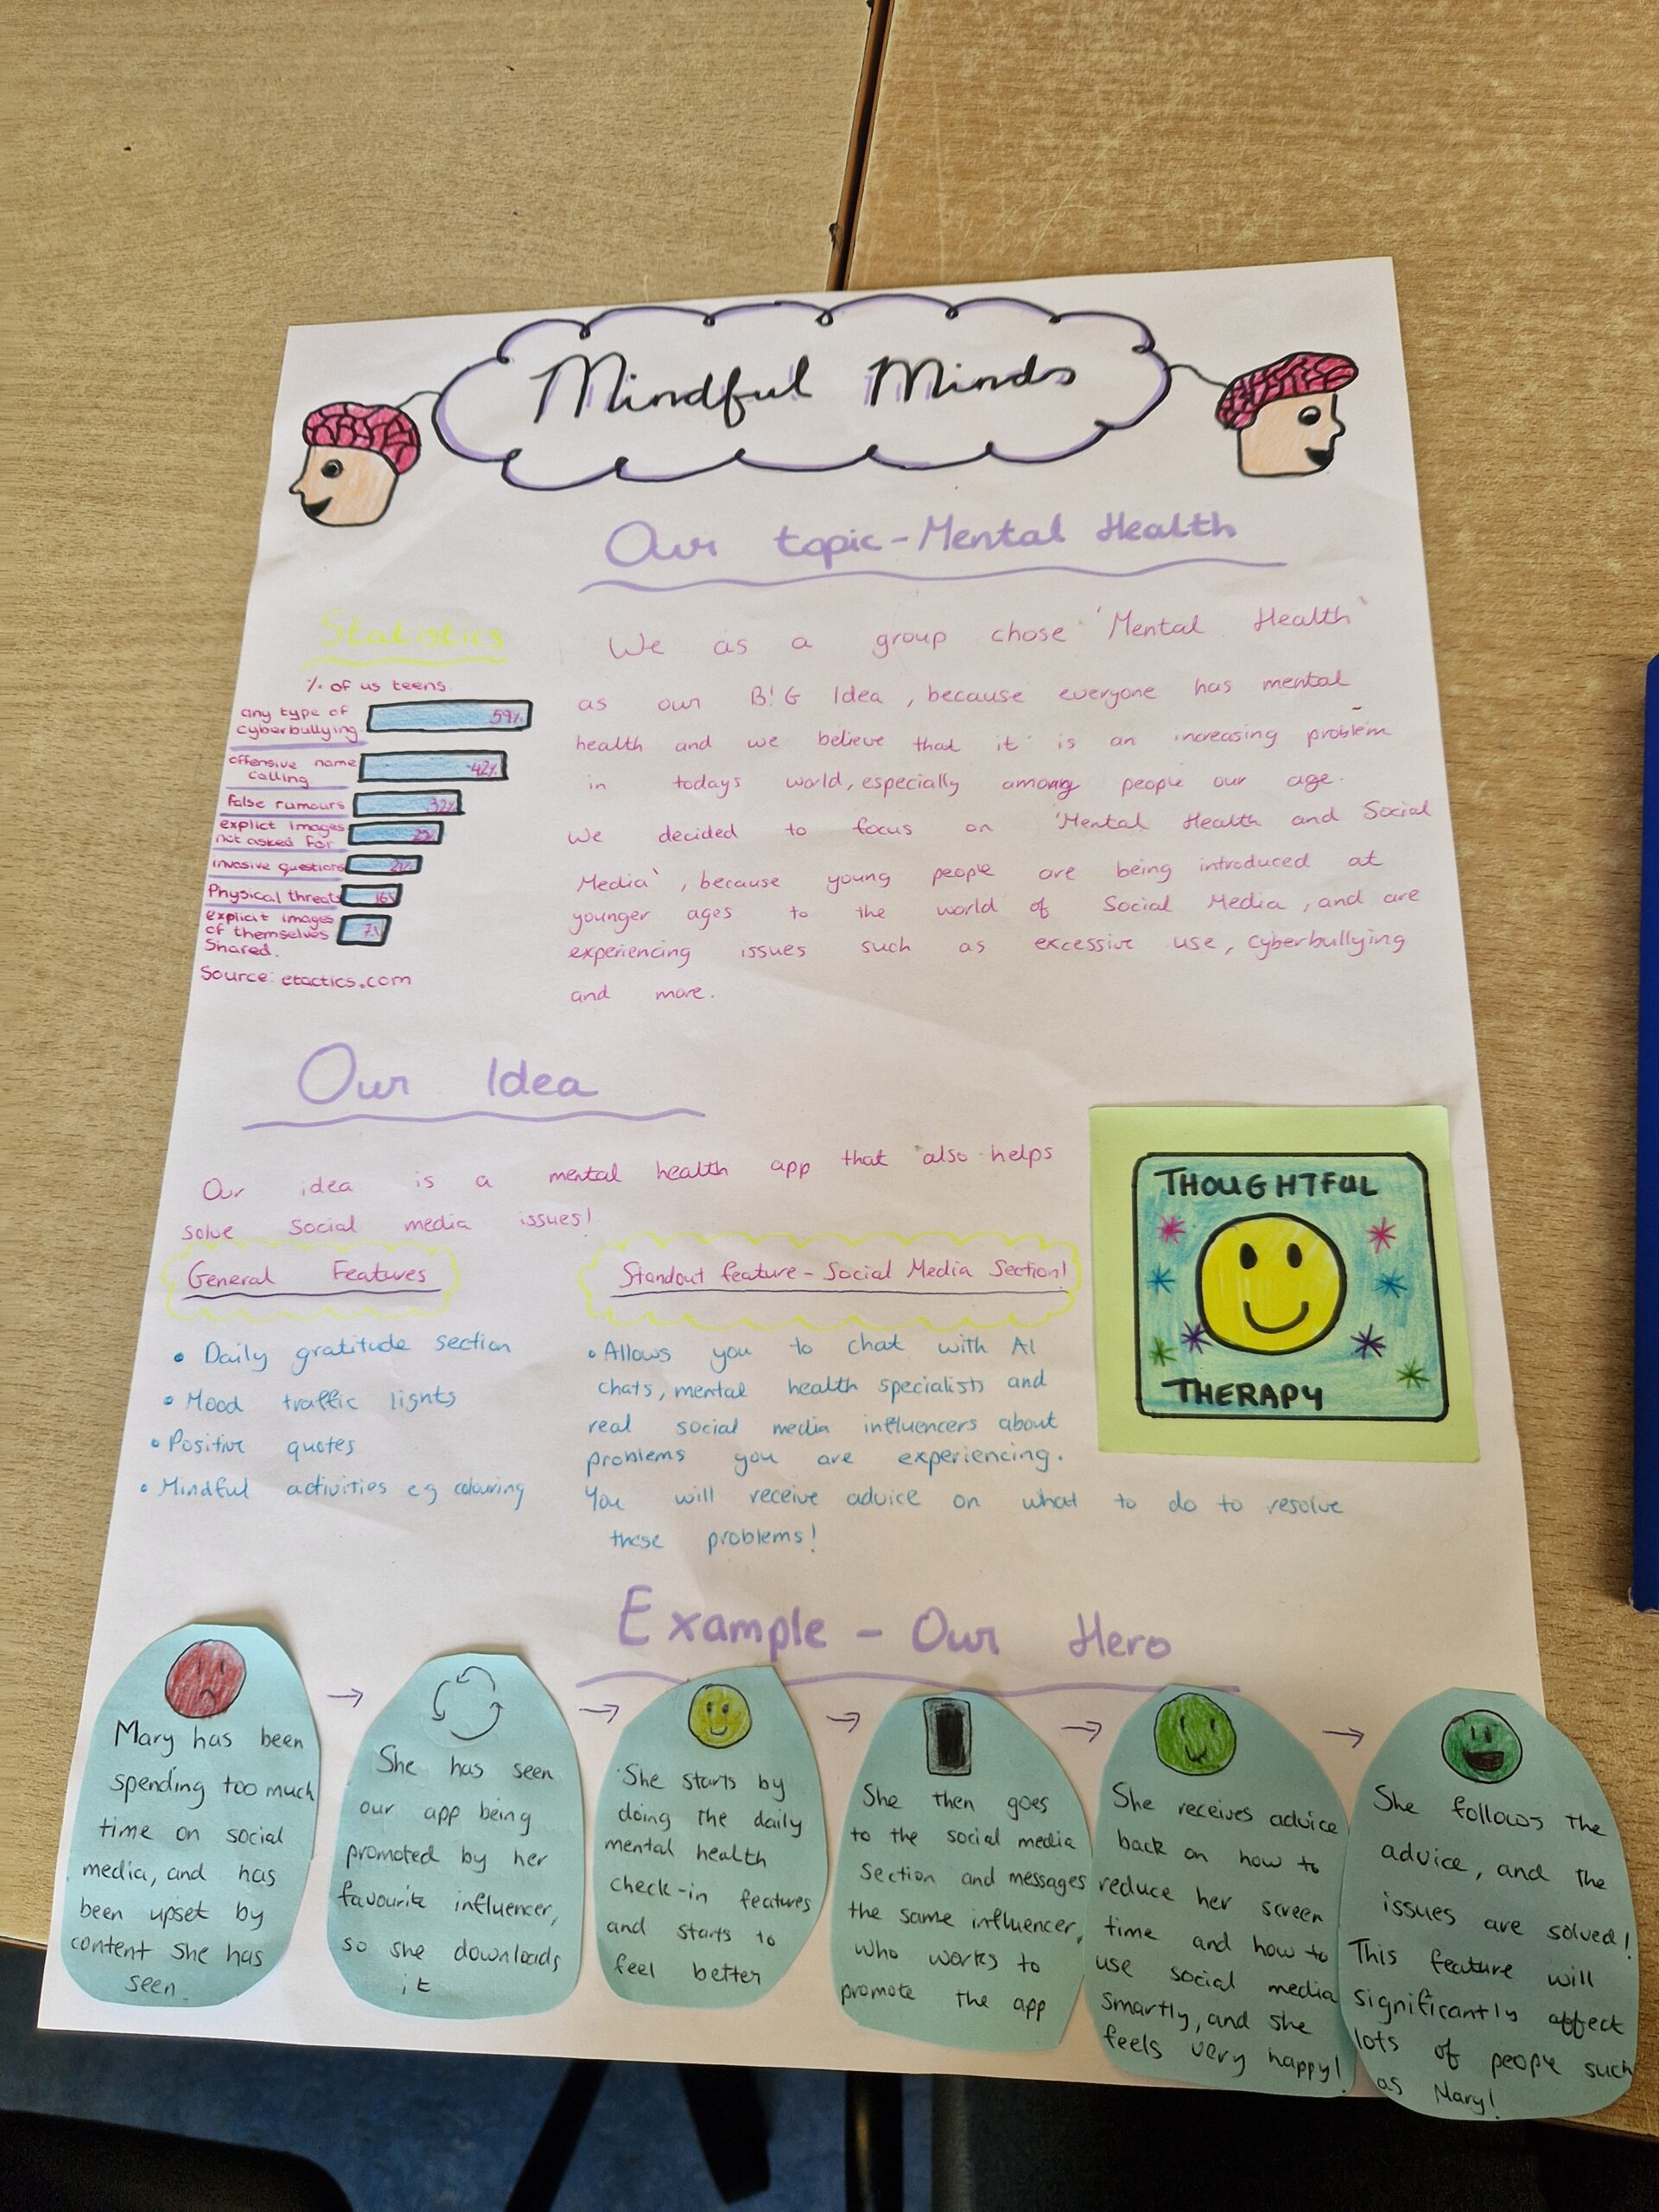 Mindful Minds
Our topic - Mental Health
Statistics
% of us teens.
any type of
cyberbullying.
59%
offensive name
calling
42%
False rumours
32%
explict images
not asked for
25%
invasive questions
21%
Physical threats
16%
explicit images
of themselves
Shared.
7%
Source: etactics.com
We as a group chose 'Mental Health'
as our B!G Idea, because everyone has mental
health and we believe that it is an increasing problem
in todays world, especially among people our age.
We decided to focus on 'Mental Health and Social
Media', because young people are being introduced at
younger ages to the world of Social Media, and are
experiencing issues such as excessive use, cyberbullying
and more.
Our Idea
Our idea is a mental health app that also helps
solve social media issues!
General Features
• Daily gratitude section
• Mood traffic lights
• Positive quotes
• Mindful activities eg colouring
Standout feature - Social Media Section!
• Allows you to chat with AI
chats, mental health specialists and
real social media influencers about
problems you are experiencing.
You will receive advice on what to do to resolve
these problems!
THOUGHTFUL
THERAPY
Example - Our Hero
Mary has been
spending too much
time on social
media, and has
been upset by
content she has
seen.
She has seen
our app being
promoted by her
favourite influencer,
so she downloads
it
She starts by
doing the daily
mental health
check-in features
and starts to
feel better
She then goes
to the social media
section and messages
the same influencer,
who works to
promote the app
She receives advice
back on how to
reduce her screen
time and how to
use social media
smartly, and she
feels very happy!
She follows the
advice, and the
issues are solved!
This feature will
significantly affect
lots of people such
as Mary!